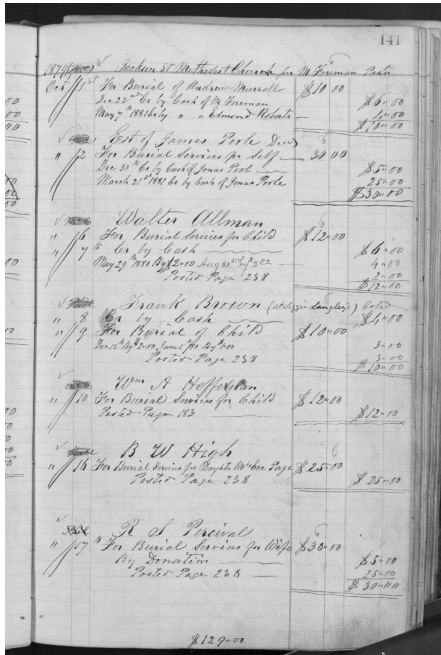 141
1879 Jackson St Methodist Church for M Foreman Pastor
Oct 1st For Burial of Andrew Murrell $10.00
Dec 22nd Cr by Cash of M Foreman $6.00
May 7th 1881 by " " Edmond 4.00
$10.00
Est of James Poole Decd
" 2 For Burial Services for Self 30.00
Dec 31st Cr by Cash of Jonas Pool $5.00
March 21st 1881 Cr by Cash of Jonas Poole 25.00
$30.00
Walter Allman
" 6 For Burial Services for Child $12.00
" 7th Cr By Cash $6.00
May 29th 1880 By $2.00 Aug 31st by 2.00 4.00
Posted Page 238 2.00
$12.00
Frank Brown
" 8 Cr by Cash $4.00
" 9 For Burial of Child $10.00
3.00
Posted Page 238 3.00
$10.00
Wm A Heffernan
" 10 For Burial Services for Child $12.00
Posted Page 183 $12.00
B W High
" 16 For Burial Services for Page $25.00
Posted Page 238 $25.00
R S Percival
" 17 " For Burial Services for Wife $30.00
By Donation $5.00
Posted Page 238 25.00
$30.00
$129.00